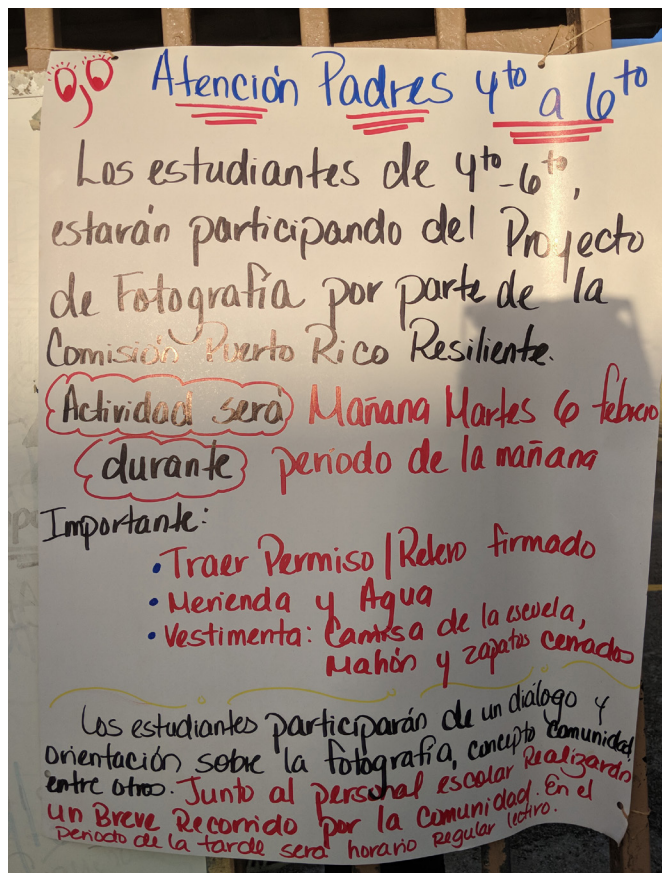 Ojo Atención Padres 4to a 6to
Los estudiantes de 4to-6to,
estarán participando del Proyecto
de Fotografía por parte de la
Comisión Puerto Rico Resiliente.
Actividad será Mañana Martes 6 febrero
durante periodo de la mañana
Importante:
• Traer Permiso/Relevo firmado
• Merienda y Agua
• Vestimenta: Camisa de la escuela,
Mahón y zapatos cerrados
Los estudiantes participarán de un diálogo y
orientación sobre la fotografía, concepto comunidad,
entre otros. Junto al personal escolar Realizarán
un Breve Recorrido por la Comunidad. En el
Periodo de la tarde será horario Regular lectivo.